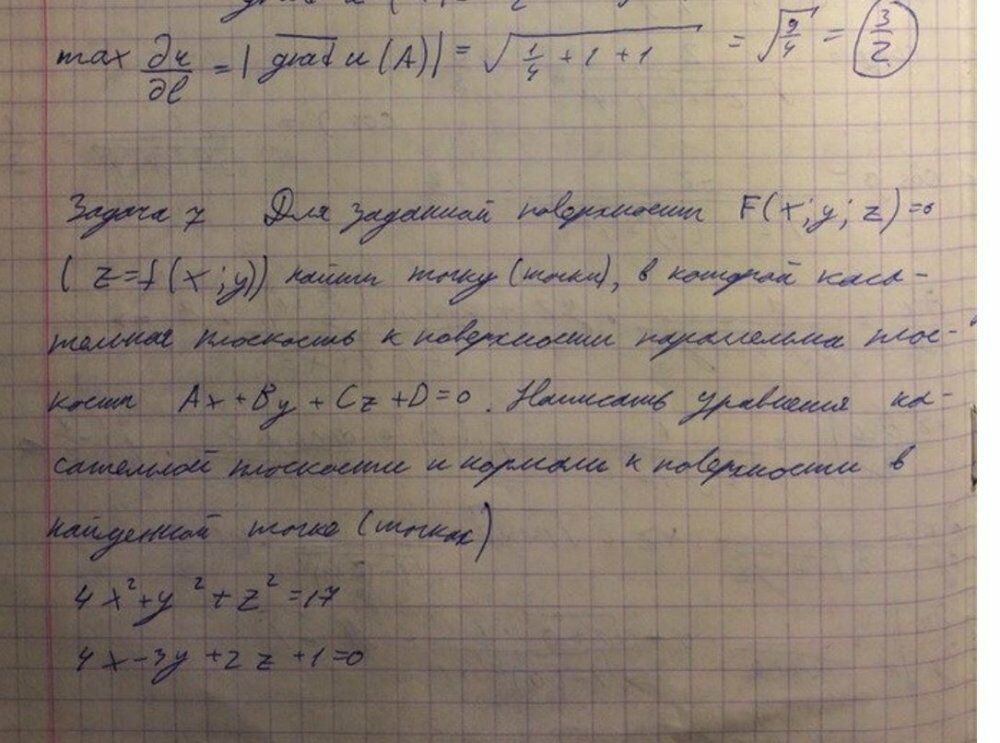 max ∂u/∂l = |grad u(A)| = √(1/4 + 1 + 1) = √(9/4) = 3/2
Задача 7 Для заданной поверхности F(x; y; z)=0
(z=f(x; y)) найти точку (точки), в которой каса-
тельная плоскость к поверхности параллельна плос-
кости Ax+By+Cz+D=0. Написать уравнения ка-
сательной плоскости и нормали к поверхности в
найденной точке (точках)
4x²+y²+z²=17
4x-3y+2z+1=0